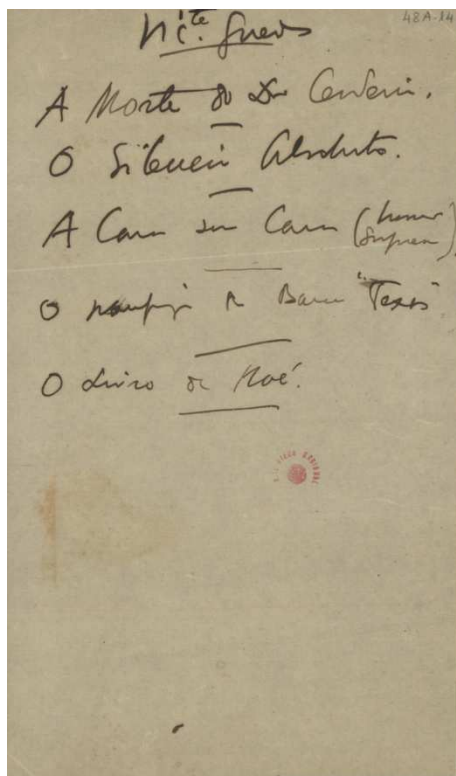 48A-14
Vicᵗᵉ. Guedes
A Morte do Dr Cerdeira.
O Silencio Absoluto.
A Casa sem Casa
O naufragio da Barca
O Livro de Noé.